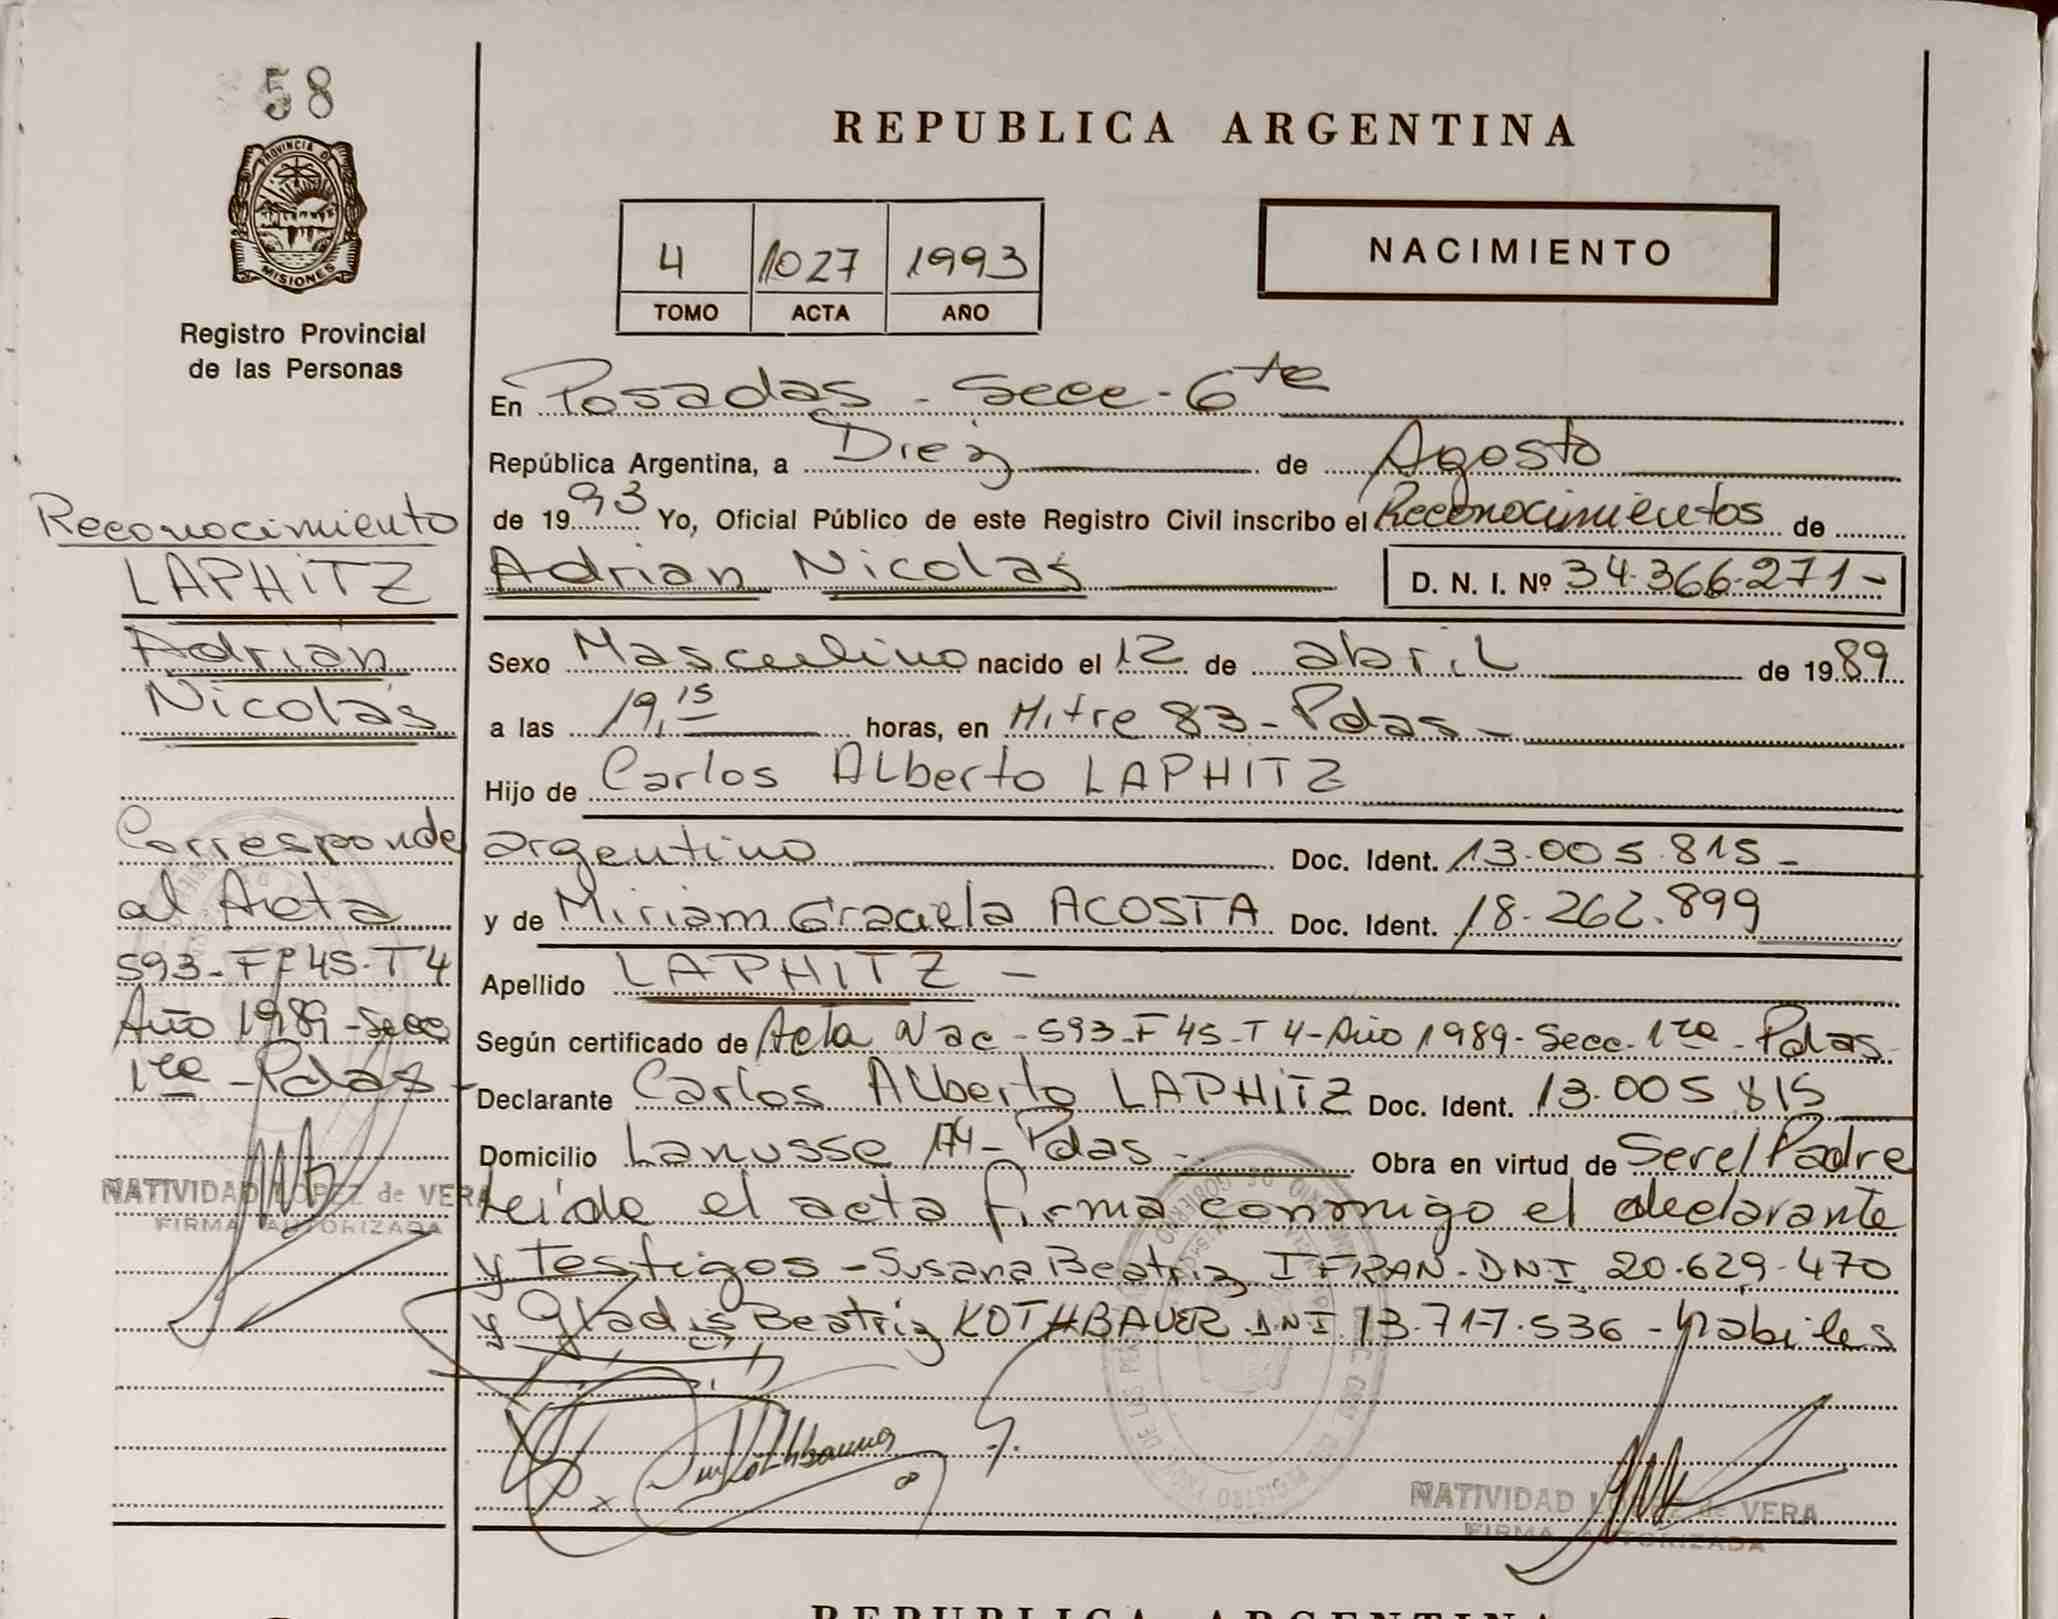 58
PROVINCIA DE
MISIONES
Registro Provincial
de las Personas
Reconocimiento
LAPHITZ
Adrian
Nicolás
Corresponde
al Acta
593-Fº 45-T4
Año 1989-Secc
1ra-Pdas-
NATIVIDAD LOPEZ de VERA
FIRMA AUTORIZADA
REPUBLICA ARGENTINA
4 1027 1993
TOMO ACTA AÑO
NACIMIENTO
En Posadas - Secc - 6ta
República Argentina, a Diez de Agosto
de 1993 Yo, Oficial Público de este Registro Civil inscribo el Reconocimientos de
Adrian Nicolas D. N. I. Nº 34.366.271-
Sexo Masculino nacido el 12 de abril de 1989
a las 19,15 horas, en Mitre 83 - Pdas -
Hijo de Carlos Alberto LAPHITZ
argentino Doc. Ident. 13.005.815-
y de Miriam Graciela ACOSTA Doc. Ident. 18.262.899
Apellido LAPHITZ -
Según certificado de Acta Nac - 593-F 45-T 4-Año 1989-Secc-1ra-Pdas
Declarante Carlos Alberto LAPHITZ Doc. Ident. 13.005 815
Domicilio Lanusse 174 - Pdas - Obra en virtud de Ser el Padre
Leída el acta firma conmigo el declarante
y Testigos - Susana Beatriz IFRAN - DNI 20.629.470
y Gladis Beatriz KOTHBAUER DNI 13.717.536 - habiles
NATIVIDAD LOPEZ de VERA
FIRMA AUTORIZADA
REPUBLICA ARGENTINA